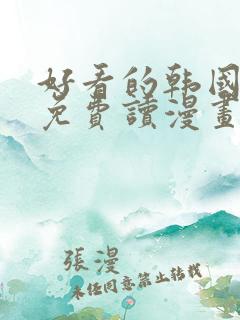 好看的韩国
免費讀漫畫
張漫
未经同意禁止转载